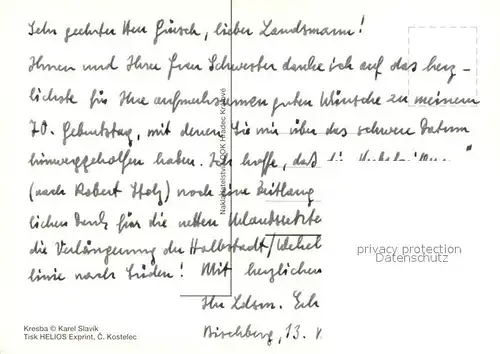 Sehr geehrter Herr Girsch, lieber Landsmann!
Ihnen und Ihrer Frau Schwester danke ich auf das herz-
lichste für Ihre aufmerksamen guten Wünsche zu meinem
70. Geburtstag, mit denen Sie mir über das schwere Datum
hinweggeholfen haben. Ich hoffe, daß die
(nach Robert Stolz) noch eine Zeitlang
lichen Dank für die netten
die Verlängerung der Halbstadt/
linie nach Süden! Mit herzlichen
Ihr Ldsm.
13.
Nakladatelství POOK Hradec Králové
privacy protection
Datenschutz
Kresba © Karel Slavík
Tisk HELIOS Exprint, Č. Kostelec